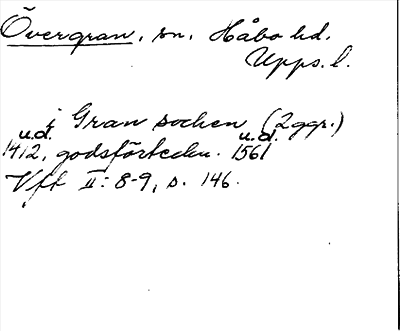 Övergran, sn, Håbo hd.
Upps. l.
i Gran socken (2 ggr.)
u.d. u.d.
1412, godsförteckn. 1561
Vft II: 8-9, s. 146.